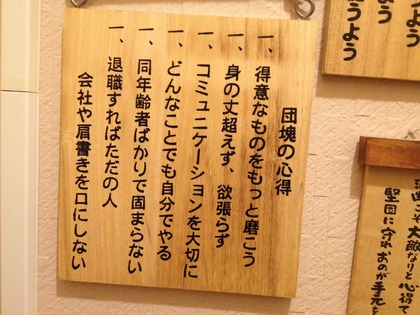 団塊の心得
一、得意なものをもっと磨こう
一、身の丈超えず、欲張らず
一、コミュニケーションを大切に
一、どんなことでも自分でやる
一、同年齢者ばかりで固まらない
一、退職すればただの人
会社や肩書きを口にしない
おう
よう
大敵なりと心得て
堅固に守れおのが手元を